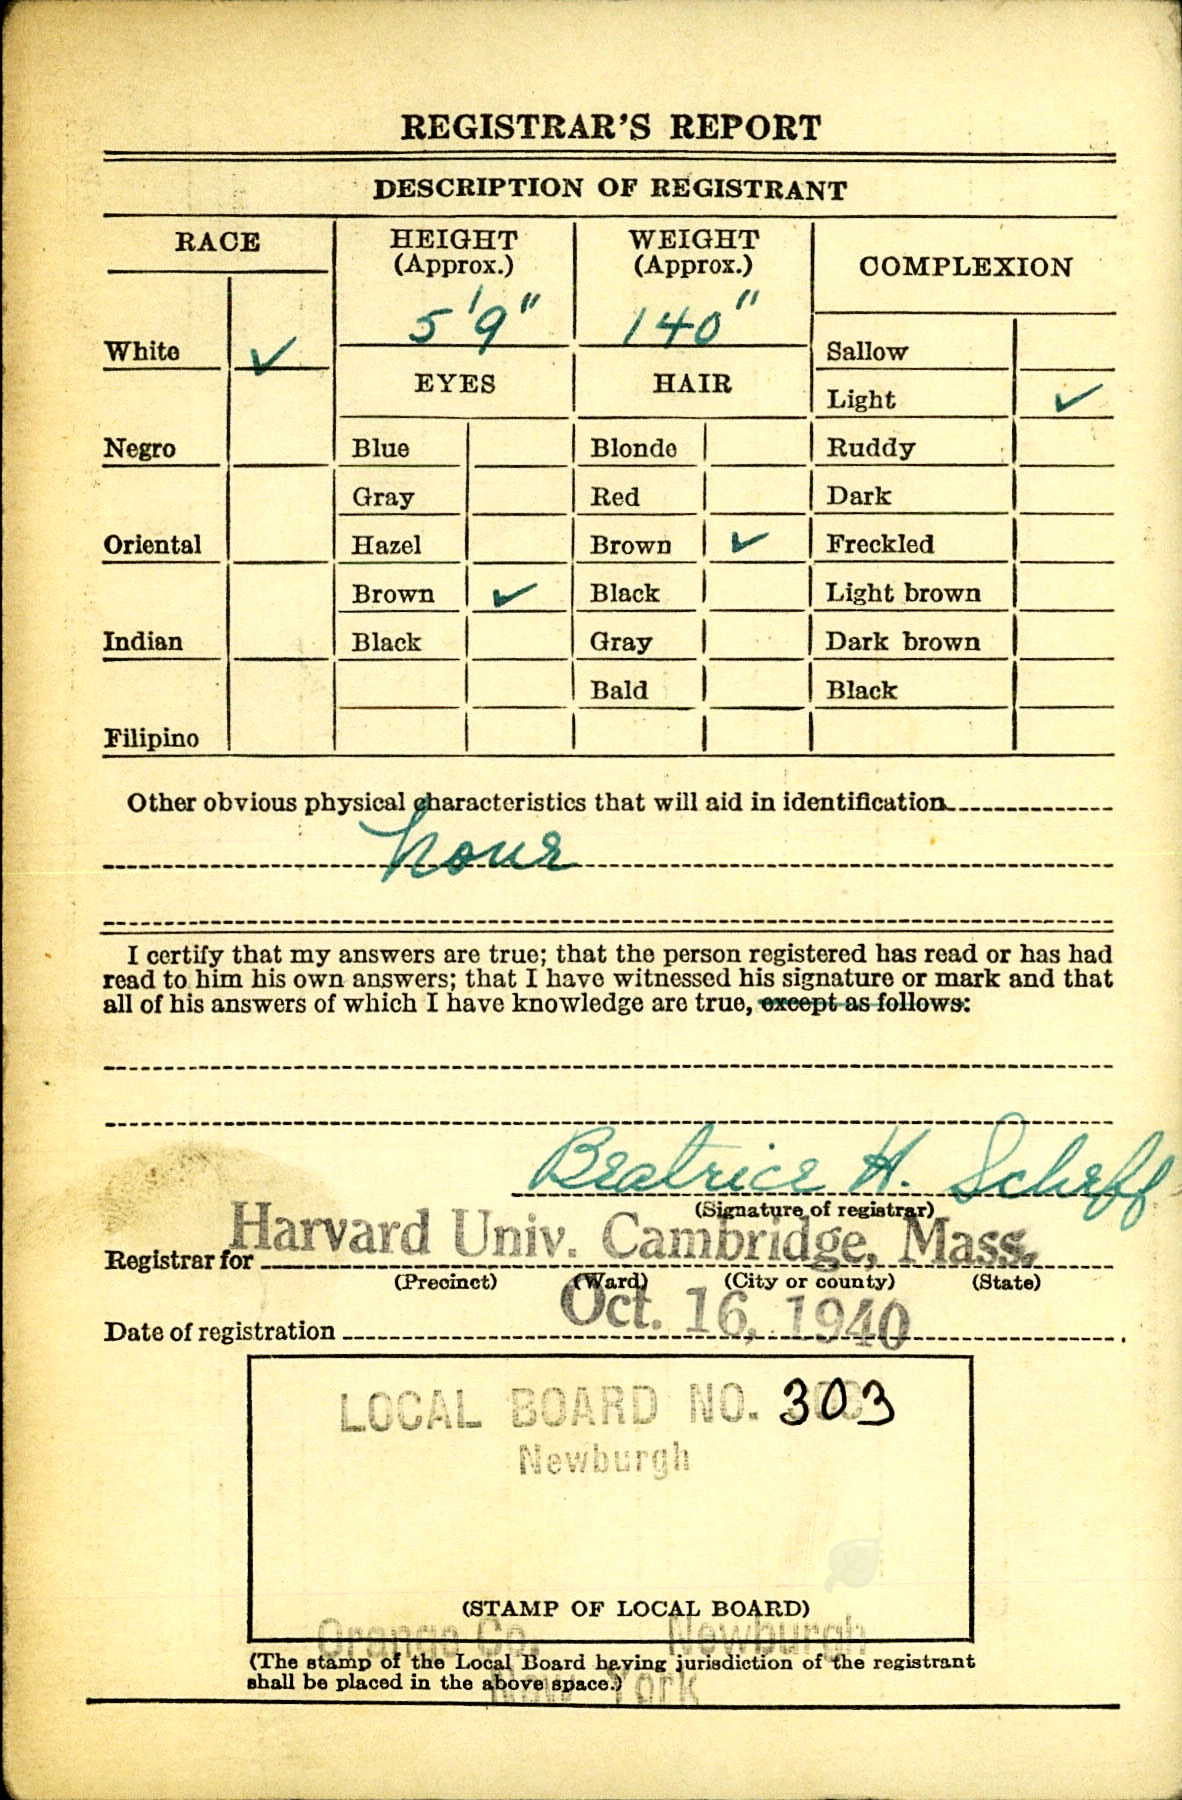 REGISTRAR'S REPORT
DESCRIPTION OF REGISTRANT
RACE
HEIGHT
(Approx.)
WEIGHT
(Approx.)
COMPLEXION
5'9"
140"
White ✓
EYES
HAIR
Sallow
Light ✓
Negro
Blue
Blonde
Ruddy
Gray
Red
Dark
Oriental
Hazel
Brown ✓
Freckled
Brown ✓
Black
Light brown
Indian
Black
Gray
Dark brown
Bald
Black
Filipino
Other obvious physical characteristics that will aid in identification
none
I certify that my answers are true; that the person registered has read or has had
read to him his own answers; that I have witnessed his signature or mark and that
all of his answers of which I have knowledge are true, except as follows:
Beatrice H. Scheff
(Signature of registrar)
Registrar for Harvard Univ. Cambridge, Mass.
(Precinct) (Ward) (City or county) (State)
Date of registration Oct. 16, 1940
LOCAL BOARD NO. 303
Newburgh
(STAMP OF LOCAL BOARD)
Orange Co. Newburgh
(The stamp of the Local Board having jurisdiction of the registrant
shall be placed in the above space.)
New York